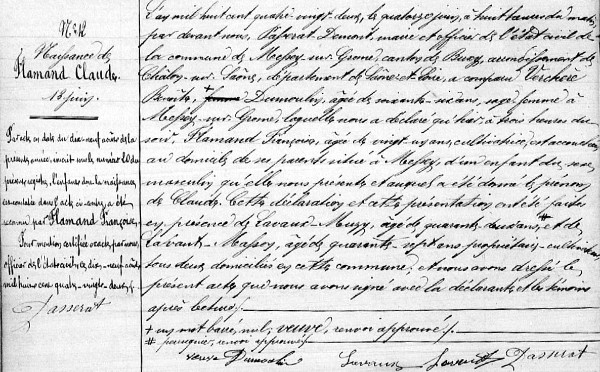 N° 12
Naissance de
Flamand Claude
13 juin.
Par acte en date du dix-neuf août de la
présente année, inscrit sous le numéro 20 du
présent registre, l'enfant dont la naissance
est constatée dans l'acte ci-contre, a été
reconnu par Flamand Françoise.
Pour mention certifiée exacte par nous,
officier de l'état civil, ce dix-neuf août
mil huit cent quatre-vingt-deux.
Passerat
L'an mil huit cent quatre-vingt-deux, le quatorze juin, à huit heures du matin,
par devant nous, Passerat Demont, maire et officier de l'état civil de
la commune de Messey-sur-Grosne, canton de Buxy, arrondissement de
Chalon-sur-Saône, département de Saône et Loire, a comparu Verchère
Benoîte, + femme Dumoulin, âgée de soixante-six ans, sage-femme à
Messey-sur-Grosne, laquelle nous a déclaré qu'hier à trois heures du
soir, Flamand Françoise, âgée de vingt-un ans, cultivatrice, est accouchée
au domicile de ses parents situé à Messey, d'un enfant du sexe
masculin qu'elle nous présente et auquel a été donné le prénom
de Claude. Cette déclaration et cette présentation ont été faites
en présence de Lavaux-Meuzy, âgé de quarante-deux ans, # et de
Lavaut-Massoy, âgé de quarante-sept ans, propriétaire-cultivateur,
tous deux domiciliés en cette commune, et nous avons dressé le
présent acte que nous avons signé avec la déclarante et les témoins
après lecture.
+ un mot barré, nul, veuve, renvoi approuvé.
# renvoi approuvé
veuve Dumoulin Lavaux Lavaut Passerat